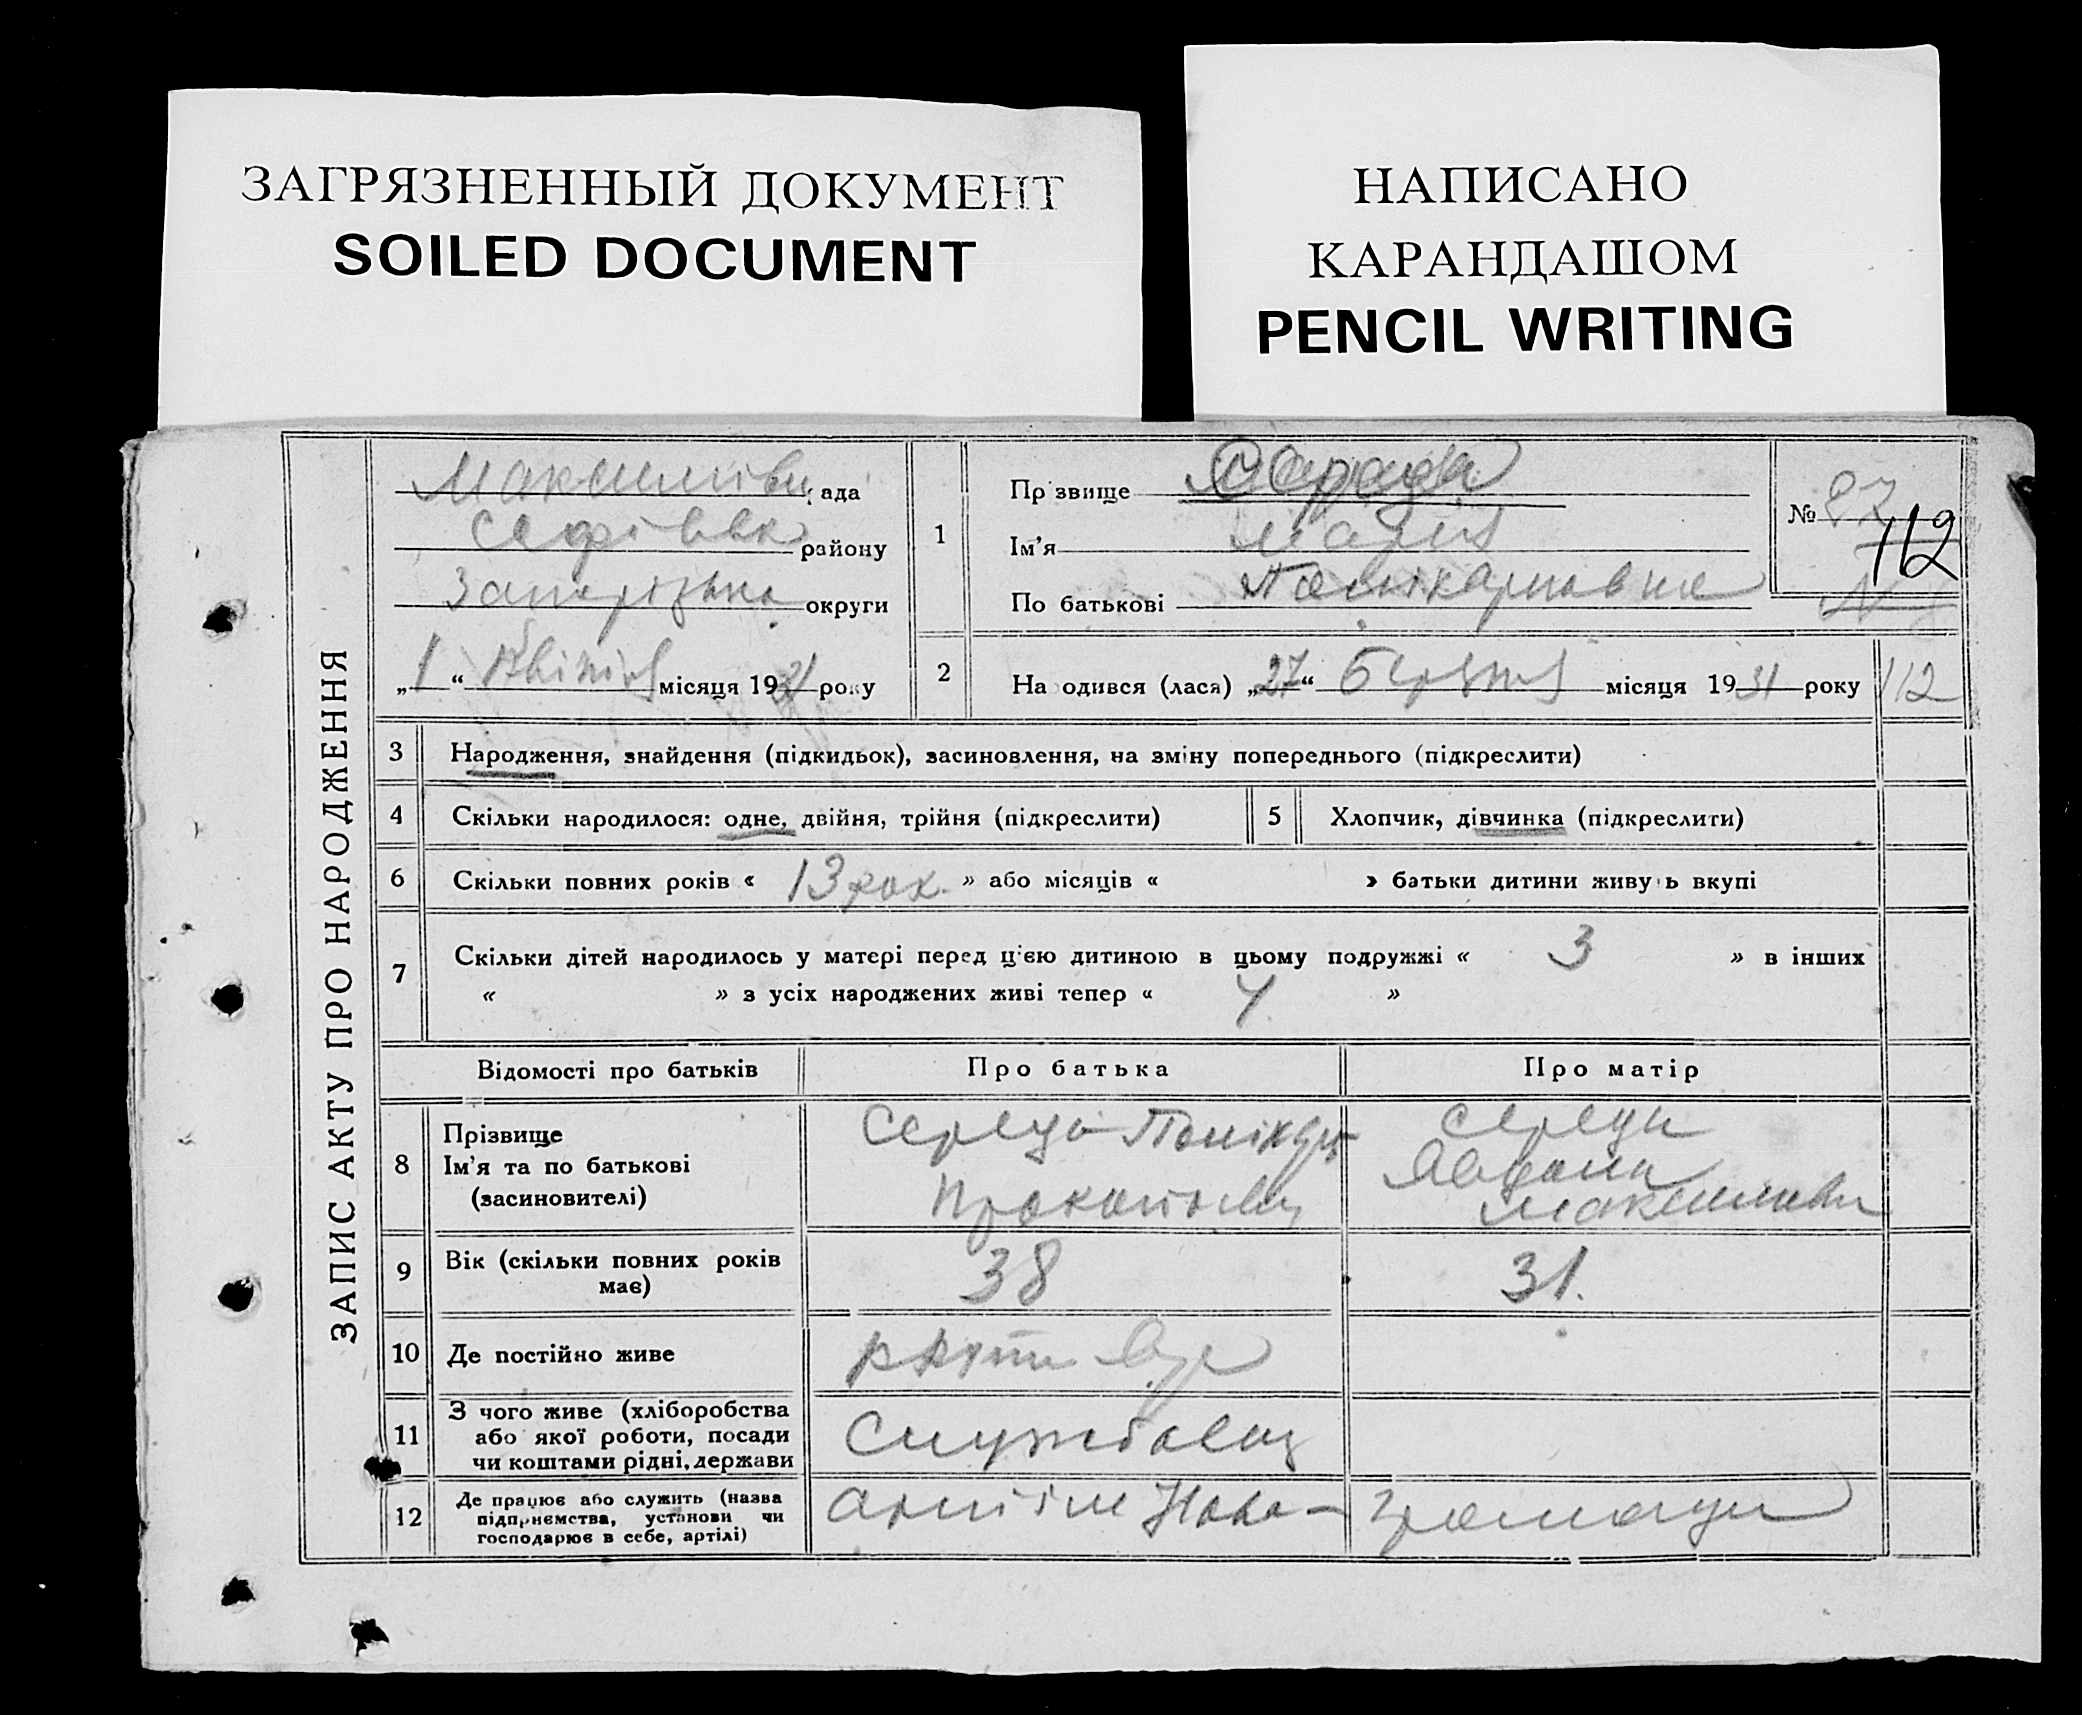 ЗАГРЯЗНЕННЫЙ ДОКУМЕНТ
SOILED DOCUMENT
НАПИСАНО
КАРАНДАШОМ
PENCIL WRITING
ЗАПИС АКТУ ПРО НАРОДЖЕННЯ
рада
району
округи
„1“ Квітня місяця 1931 року
1
Прізвище Середа
Ім'я Марія
По батькові Полікарповна
№ 87
112
2
Народився (лася) „27“ Березня місяця 1931 року
112
3 Народження, знайдення (підкидьок), засиновлення, на зміну попереднього (підкреслити)
4 Скільки народилося: одне, двійня, трійня (підкреслити)
5 Хлопчик, дівчинка (підкреслити)
6 Скільки повних років « 13 рок. » або місяців « » батьки дитини живуть вкупі
7 Скільки дітей народилось у матері перед ц'єю дитиною в цьому подружжі « 3 » в інших
« » з усіх народжених живі тепер « 4 »
Відомості про батьків
Про батька
Про матір
8
Прізвище
Ім'я та по батькові
(засиновителі)
Середа Полікарп
Прокопович
Середа
Максимівна
9
Вік (скільки повних років
має)
38
31.
10 Де постійно живе
11
З чого живе (хліборобства
або якої роботи, посади
чи коштами рідні, держави
Службовец
12
Де працює або служить (назва
підприємства, установи чи
господарює в себе, артілі)
артіль Нова-
громада